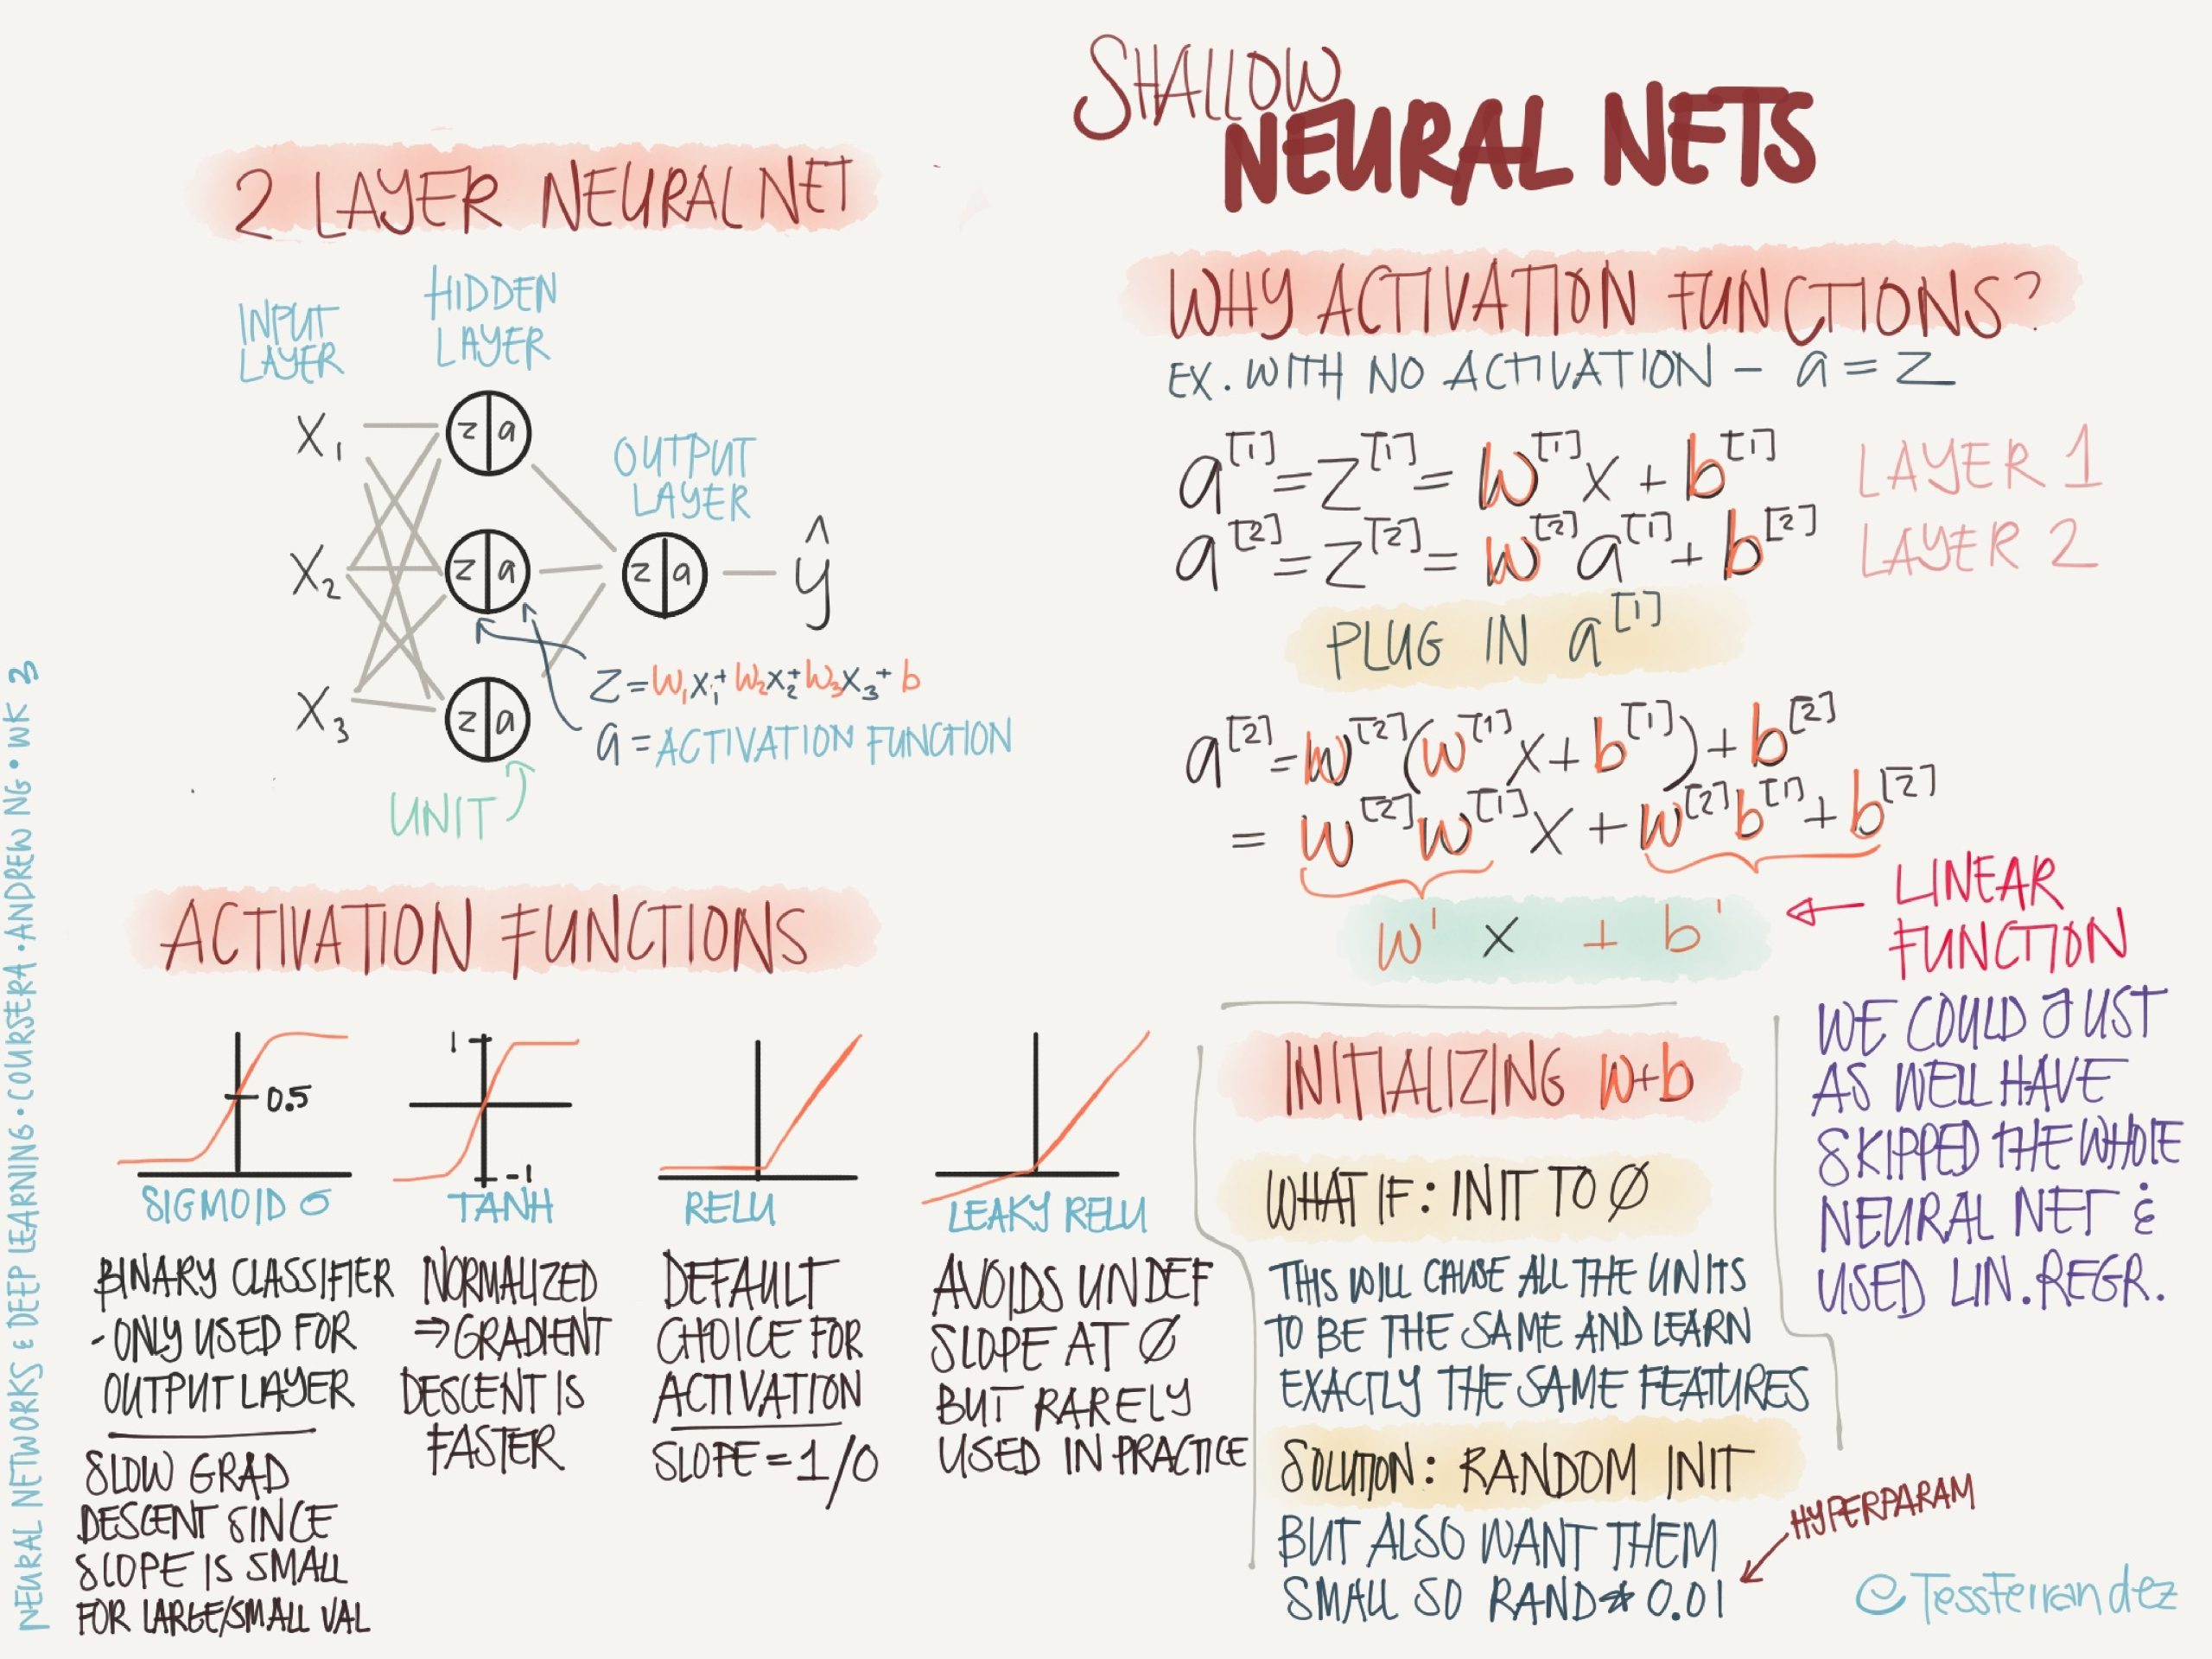 SHALLOW
NEURAL NETS
2 LAYER NEURAL NET
INPUT
LAYER
HIDDEN
LAYER
OUTPUT
LAYER
X1
X2
X3
z|a
z|a
z|a
z|a
ŷ
z = w1x1 + w2x2 + w3x3 + b
a = ACTIVATION FUNCTION
UNIT
ACTIVATION FUNCTIONS
0.5
SIGMOID σ
BINARY CLASSIFIER
- ONLY USED FOR
OUTPUT LAYER
SLOW GRAD
DESCENT SINCE
SLOPE IS SMALL
FOR LARGE/SMALL VAL
1
-1
TANH
NORMALIZED
⇒ GRADIENT
DESCENT IS
FASTER
RELU
DEFAULT
CHOICE FOR
ACTIVATION
SLOPE = 1/0
LEAKY RELU
AVOIDS UNDEF
SLOPE AT Ø
BUT RARELY
USED IN PRACTICE
WHY ACTIVATION FUNCTIONS?
EX. WITH NO ACTIVATION - a = z
a[1] = z[1] = w[1]x + b[1] LAYER 1
a[2] = z[2] = w[2]a[1] + b[2] LAYER 2
PLUG IN a[1]
a[2] = w[2](w[1]x + b[1]) + b[2]
= w[2]w[1]x + w[2]b[1] + b[2]
w' x + b'
LINEAR
FUNCTION
WE COULD JUST
AS WELL HAVE
SKIPPED THE WHOLE
NEURAL NET &
USED LIN. REGR.
INITIALIZING w+b
WHAT IF: INIT TO Ø
THIS WILL CAUSE ALL THE UNITS
TO BE THE SAME AND LEARN
EXACTLY THE SAME FEATURES
SOLUTION: RANDOM INIT
BUT ALSO WANT THEM
SMALL SO RAND * 0.01
HYPERPARAM
@TessFerrandez
NEURAL NETWORKS & DEEP LEARNING • COURSERA • ANDREW NG • WK 3